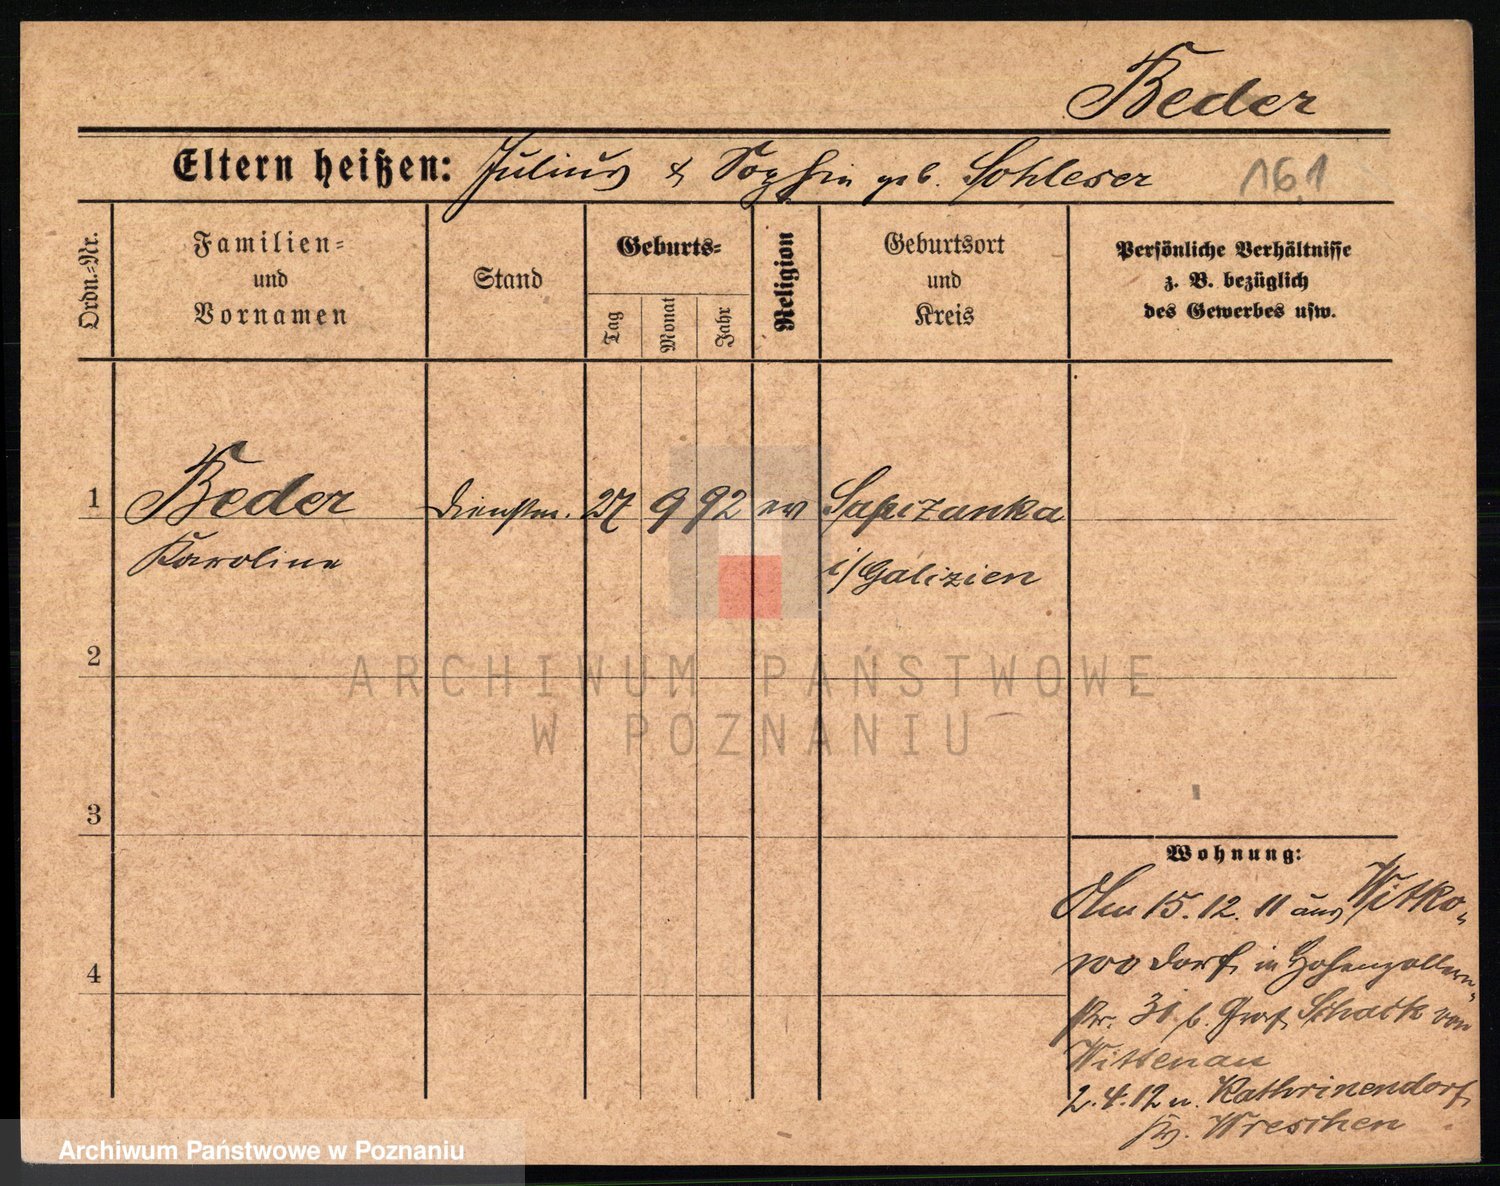 Beder
Eltern heißen: Julius & Sophie geb. Schleser
161
Ordn.=Nr.
Familien=
und
Vornamen
Stand
Geburts=
Tag
Monat
Jahr
Religion
Geburtsort
und
Kreis
Persönliche Verhältnisse
z. B. bezüglich
des Gewerbes usw.
1
Beder
Karoline
Dienstm.
27
9
92
ev
Sapizanka
i/Galizien
2
3
4
Wohnung:
Am 15.12.11 aus Witko-
wo Dorf, in Hohenzollern-
str. 31 b. Graf Schack von
Wittenau
2.4.12 n. Kathrinendorf,
Kr. Wreschen
ARCHIWUM PAŃSTWOWE
W POZNANIU
Archiwum Państwowe w Poznaniu